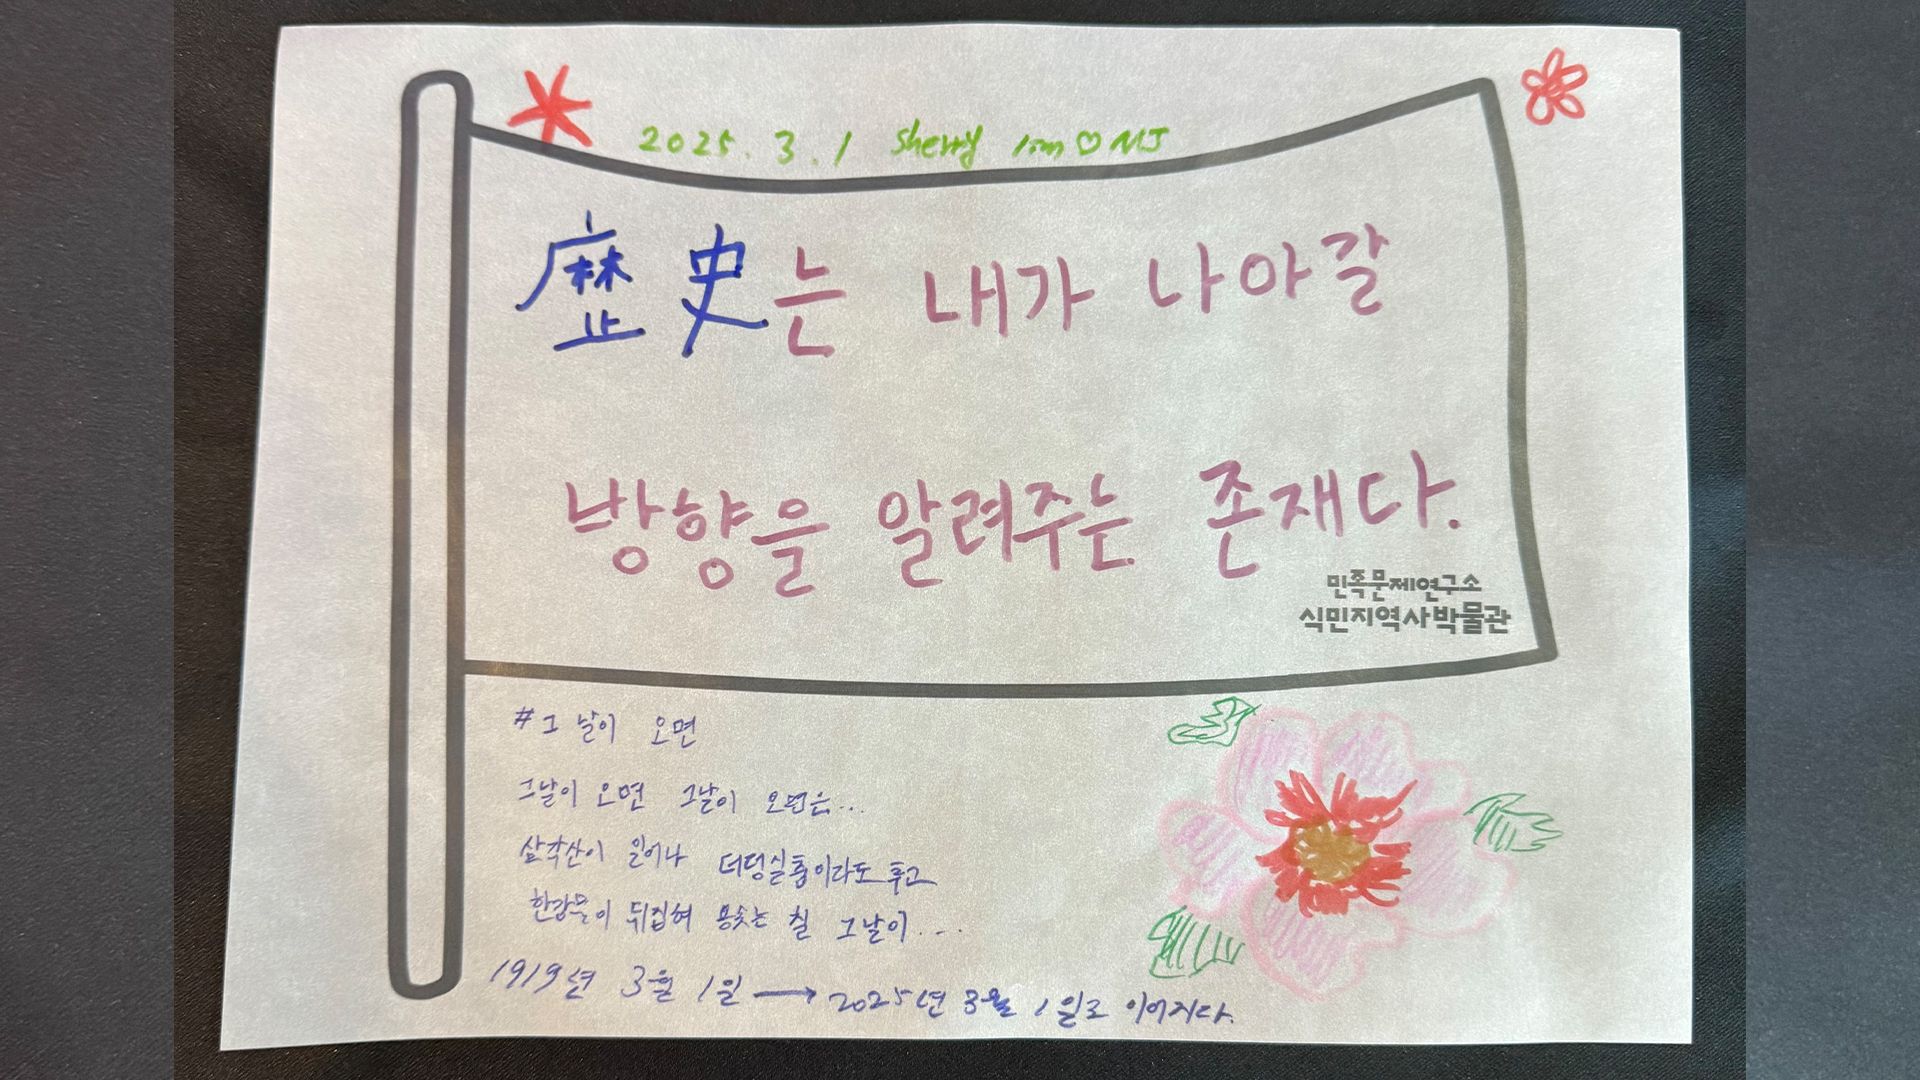 2025.3.1 Sherry lim♡MJ
歷史는 내가 나아갈
방향을 알려주는 존재다.
민족문제연구소
식민지역사박물관
#그 날이 오면
그날이 오면 그날이 오면은...
삼각산이 일어나 더덩실춤이라도 추고
한강물이 뒤집혀 용솟는 칠 그날이...
1919년 3월 1일 → 2025년 3월 1일로 이어지다.